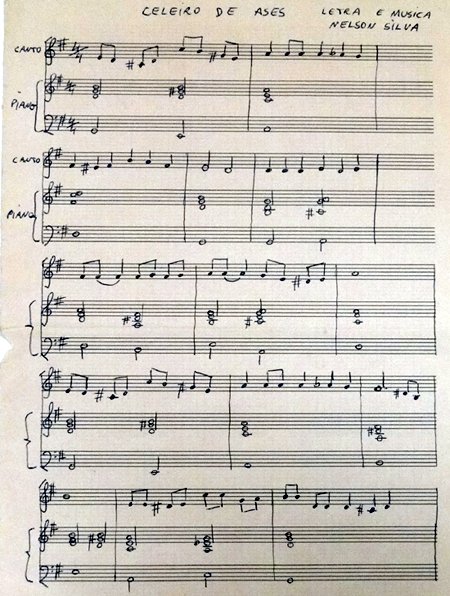 CELEIRO DE ASES LETRA E MUSICA
NELSON SILVA
CANTO
PIANO
CANTO
PIANO